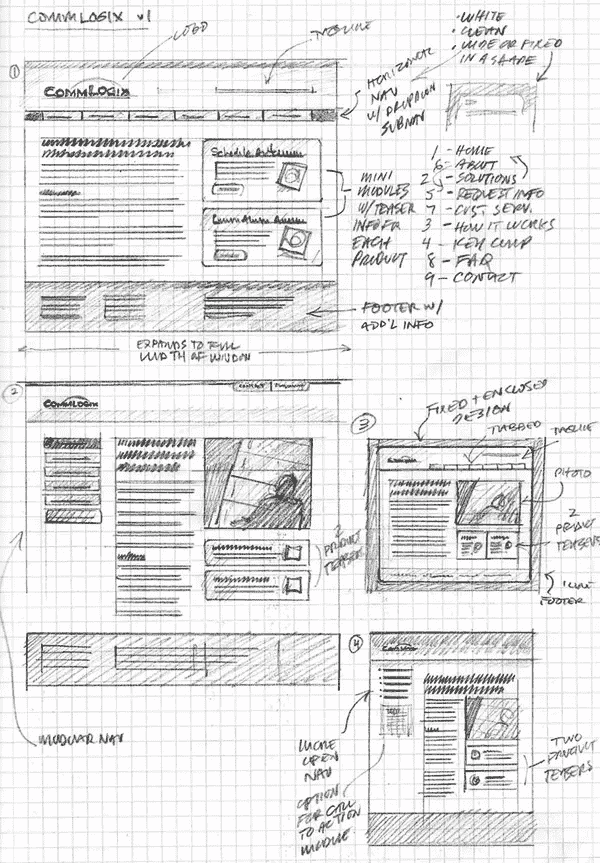 COMMLOGIX v1
LOGO
TAGLINE
• WHITE
• CLEAN
• WIDE OR FIXED
IN A SHAPE
①
COMMLOGIX
HORIZONTAL
NAV
W/ DROPDOWN
SUBNAV
MINI
MODULES
W/TEASER
INFO FOR
EACH
PRODUCT
1 - HOME
6 - ABOUT
2 - SOLUTIONS
5 - REQUEST INFO
7 - CUST SERV.
3 - HOW IT WORKS
4 - KEY COMP
8 - FAQ
9 - CONTACT
FOOTER W/
ADD'L INFO
EXPANDS TO FULL
WIDTH OF WINDOW
②
COMMLOGIX
2
PRODUCT
TEASERS
MODULAR NAV
③
FIXED + ENCLOSED
DESIGN
TABBED
TAGLINE
PHOTO
2
PRODUCT
TEASERS
1 LINE
FOOTER
④
MORE
OPEN
NAV
OPTION
FOR CALL
TO ACTION
MODULE
TWO
PRODUCT
TEASERS